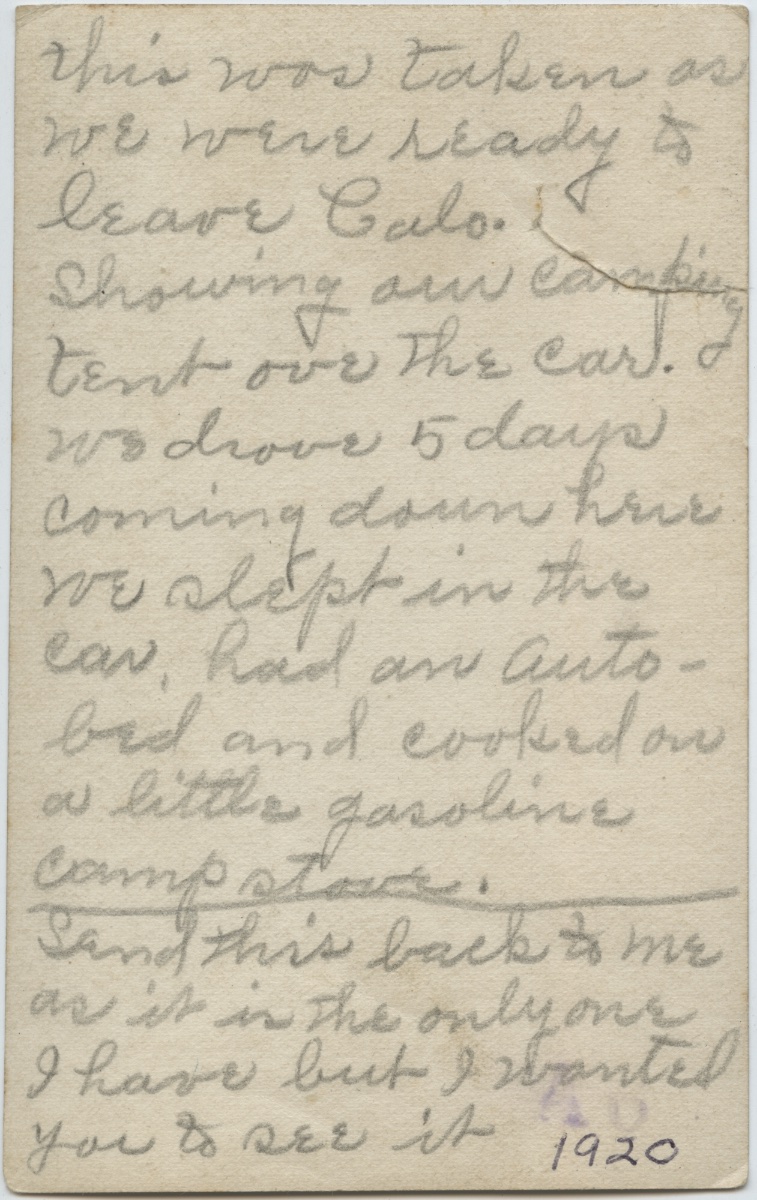 this was taken as
we were ready to
leave Colo.
Showing our camping
tent ove the car.
we drove 5 days
coming down here
we slept in the
car, had an auto-
bed and cooked on
a little gasoline
camp stove.
Send this back to me
as it is the only one
I have but I wanted
you to see it
1920